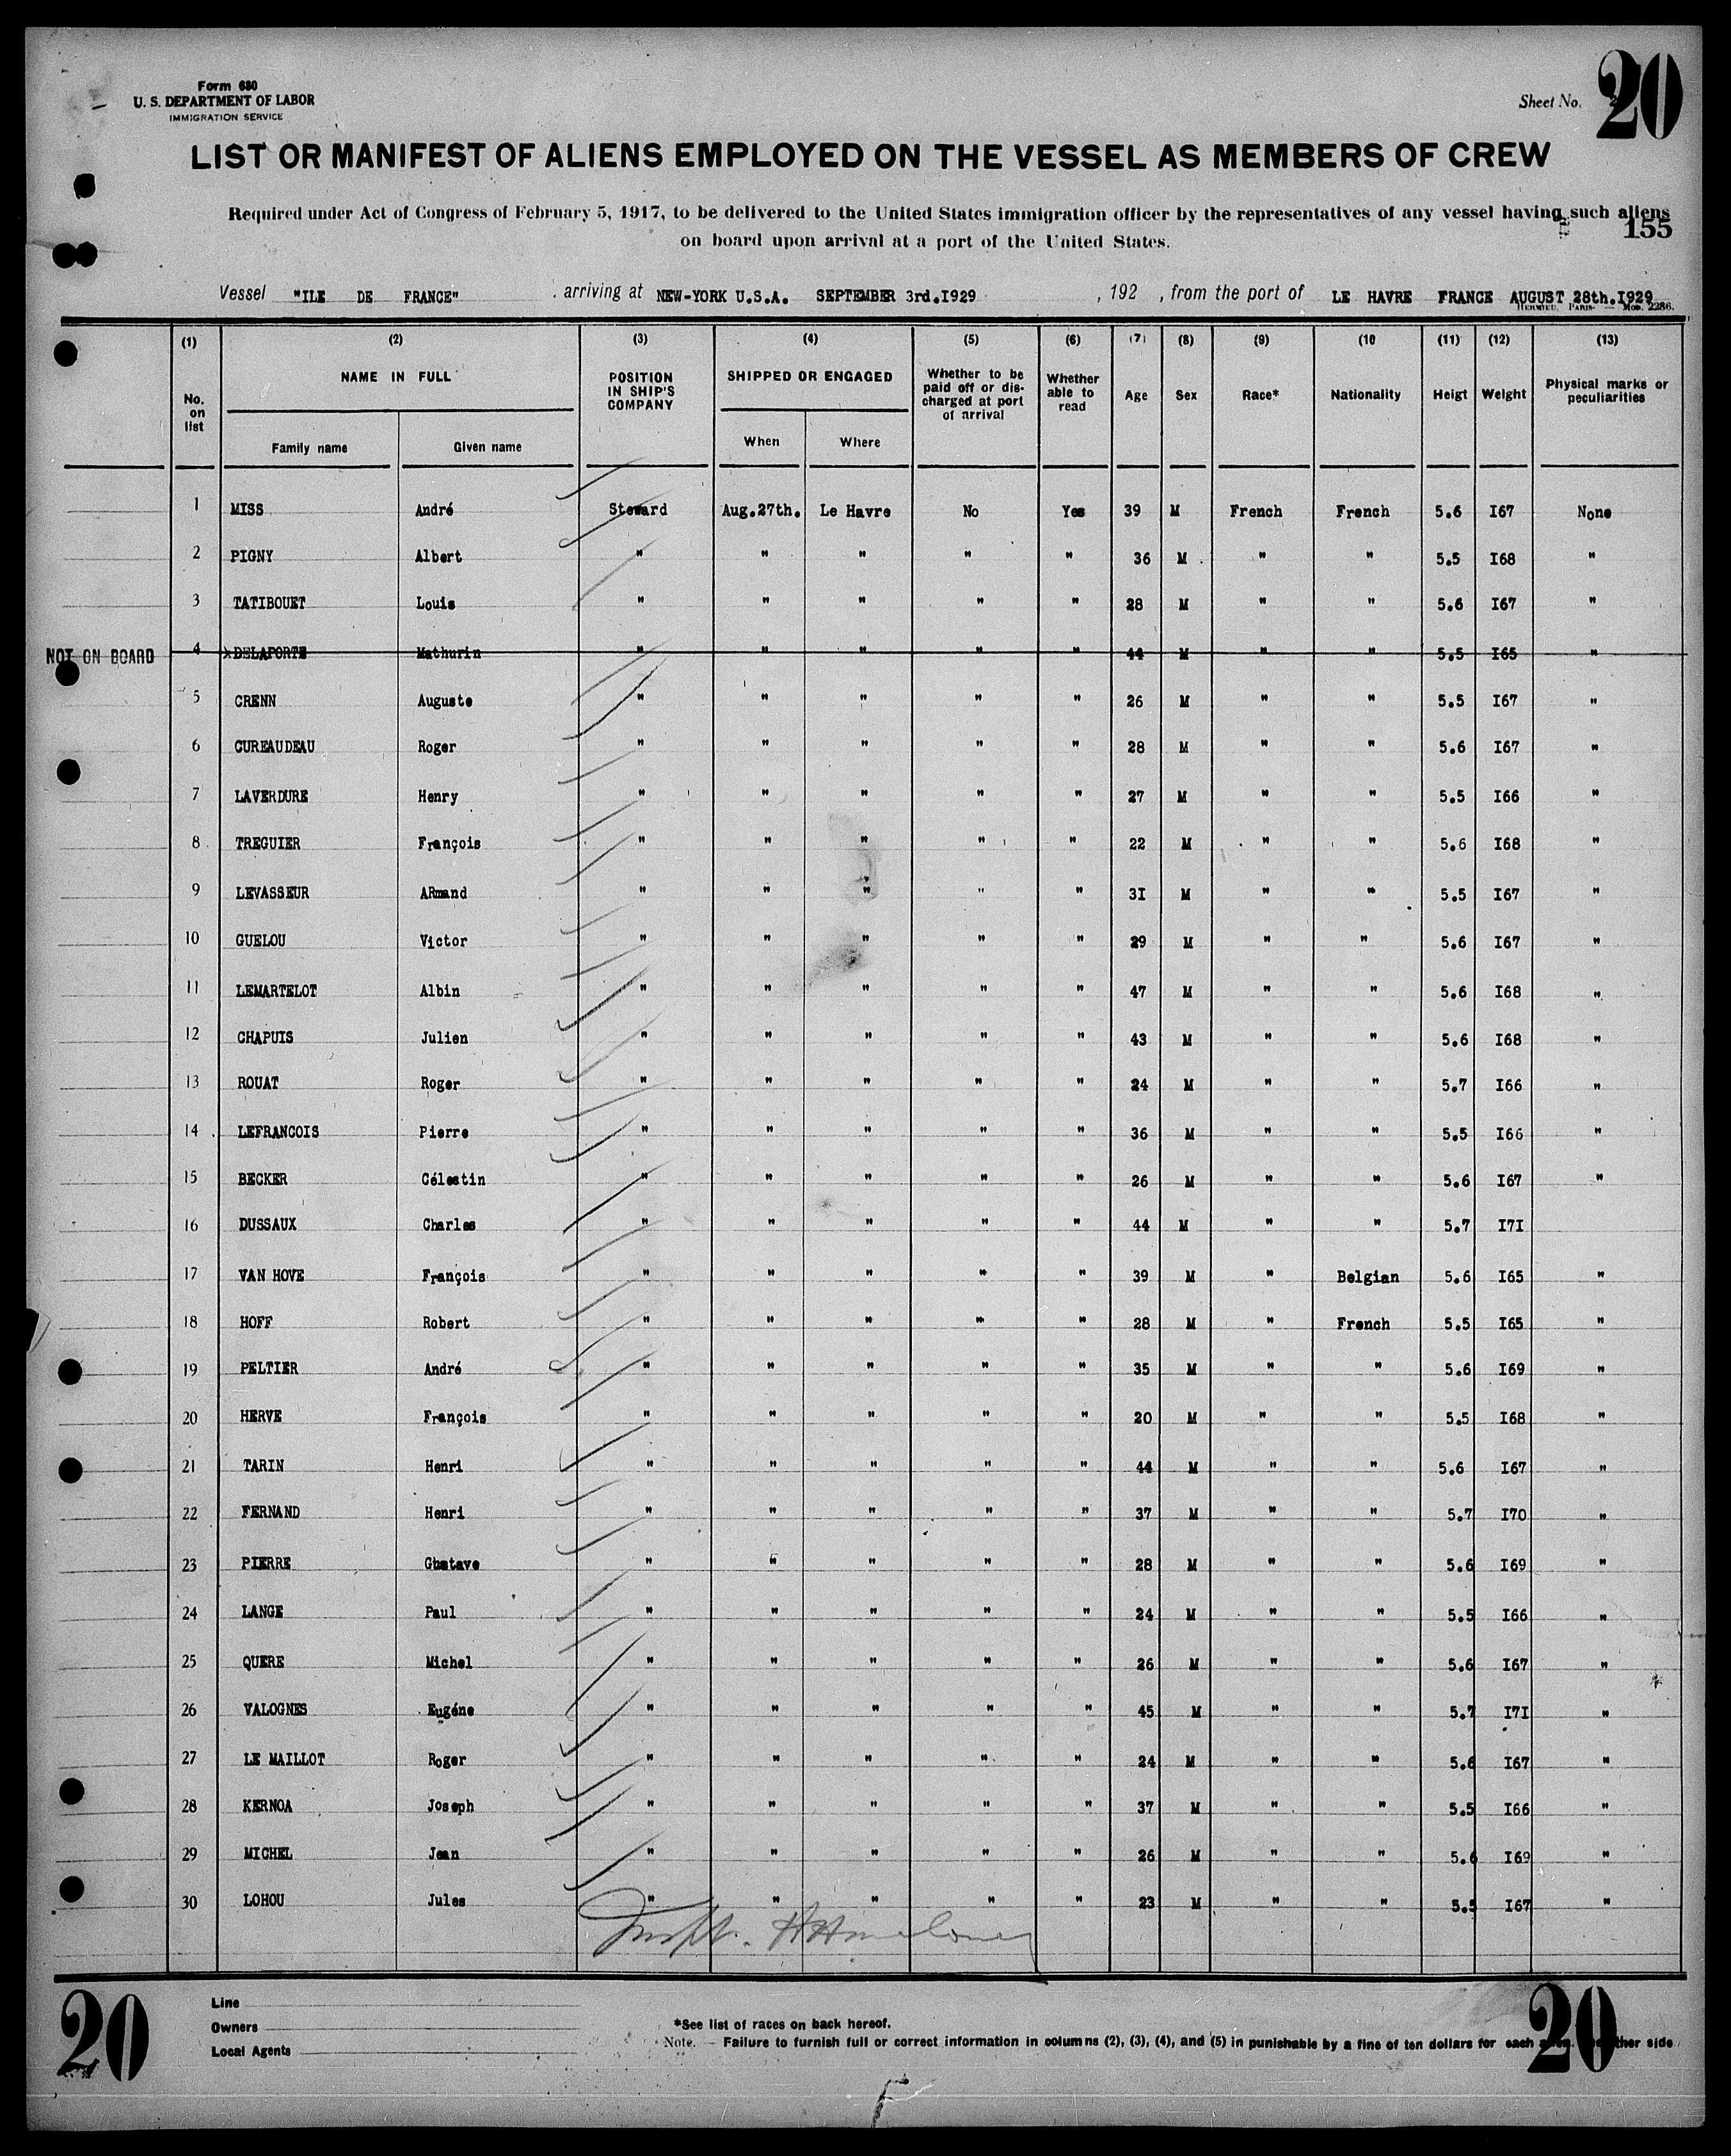 Form 680
U. S. DEPARTMENT OF LABOR
IMMIGRATION SERVICE
Sheet No. 20
LIST OR MANIFEST OF ALIENS EMPLOYED ON THE VESSEL AS MEMBERS OF CREW
Required under Act of Congress of February 5, 1917, to be delivered to the United States immigration officer by the representatives of any vessel having such aliens
on board upon arrival at a port of the United States.
155
Vessel "ILE DE FRANCE" . arriving at NEW-YORK U.S.A. SEPTEMBER 3rd.I929 , 192 , from the port of LE HAVRE FRANCE AUGUST 28th.I929
(1) (2) (3) (4) (5) (6) (7) (8) (9) (10 (11) (12) (13)
No. on list NAME IN FULL POSITION IN SHIP'S COMPANY SHIPPED OR ENGAGED Whether to be paid off or dis-charged at port of arrival Whether able to read Age Sex Race* Nationality Heigt Weight Physical marks or peculiarities
Family name Given name When Where
1 MISS André Steward Aug.27th. Le Havre No Yes 39 M French French 5.6 I67 None
2 PIGNY Albert " " " " " 36 M " " 5.5 I68 "
3 TATIBOUET Louis " " " " " 28 M " " 5.6 I67 "
NOT ON BOARD 4 DELAPORTE Mathurin " " " " " 44 M " " 5.5 I65 "
5 CRENN Auguste " " " " " 26 M " " 5.5 I67 "
6 CUREAUDEAU Roger " " " " " 28 M " " 5.6 I67 "
7 LAVERDURE Henry " " " " " 27 M " " 5.5 I66 "
8 TREGUIER François " " " " " 22 M " " 5.6 I68 "
9 LEVASSEUR ARmand " " " " " 3I M " " 5.5 I67 "
10 GUELOU Victor " " " " " 29 M " " 5.6 I67 "
11 LEMARTELOT Albin " " " " " 47 M " " 5.6 I68 "
12 CHAPUIS Julien " " " " " 43 M " " 5.6 I68 "
13 ROUAT Roger " " " " " 24 M " " 5.7 I66 "
14 LEFRANCOIS Pierre " " " " " 36 M " " 5.5 I66 "
15 BECKER Célestin " " " " " 26 M " " 5.6 I67 "
16 DUSSAUX Charles " " " " " 44 M " " 5.7 I7I
17 VAN HOVE François " " " " " 39 M " Belgian 5.6 I65 "
18 HOFF Robert " " " " " 28 M " French 5.5 I65 "
19 PELTIER André " " " " " 35 M " " 5.6 I69 "
20 HERVE François " " " " " 20 M " " 5.5 I68 "
21 TARIN Henri " " " " " 44 M " " 5.6 I67 "
22 FERNAND Henri " " " " " 37 M " " 5.7 I70 "
23 PIERRE Gustave " " " " " 28 M " " 5.6 I69 "
24 LANGE Paul " " " " " 24 M " " 5.5 I66 "
25 QUERE Michel " " " " " 26 M " " 5.6 I67 "
26 VALOGNES Eugéne " " " " " 45 M " " 5.7 I7I "
27 LE MAILLOT Roger " " " " " 24 M " " 5.6 I67 "
28 KERNOA Joseph " " " " " 37 M " " 5.5 I66 "
29 MICHEL Jean " " " " " 26 M " " 5.6 I69 "
30 LOHOU Jules " " " " " 23 M " " 5.5 I67 "
20 20
Line
Owners
Local Agents
*See list of races on back hereof.
Note. — Failure to furnish full or correct information in columns (2), (3), (4), and (5) in punishable by a fine of ten dollars for each other side